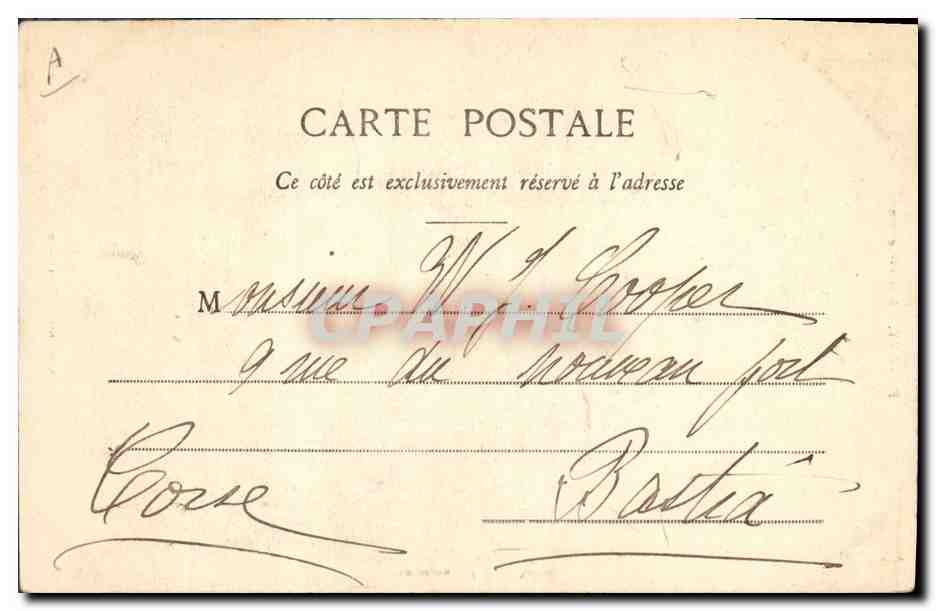 A
CARTE POSTALE
Ce côté est exclusivement réservé à l'adresse
Monsieur W J. Cooper
CPAPHIL
9 rue du nouveau port
Corse
Bastia